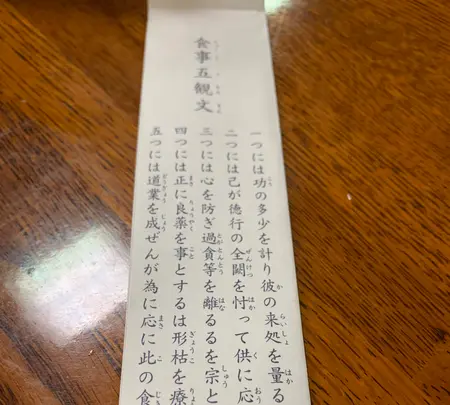 食事五観文
一つには功の多少を計り彼の来処を量る
二つには己が徳行の全闕を忖って供に応
三つには心を防ぎ過貪等を離るるを宗と
四つには正に良薬を事とするは形枯を療
五つには道業を成ぜんが為に応に此の食